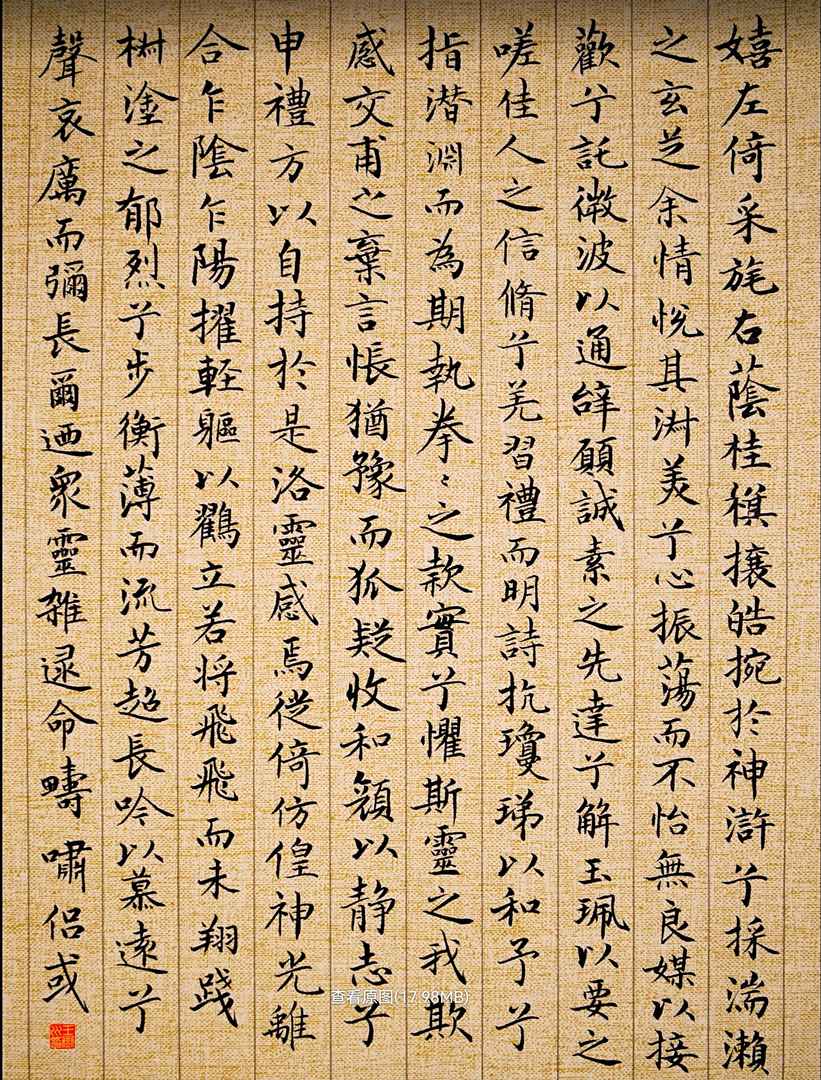 嬉左倚采旄右蔭桂旗攘皓捥於神滸兮採湍瀨
之玄芝余情悅其淑美兮心振蕩而不怡無良媒以接
歡兮託微波以通辝願誠素之先達兮解玉珮以要之
嗟佳人之信脩兮羌習禮而明詩抗瓊珶以和予兮
指潛淵而為期執拳〻之款實兮懼斯靈之我欺
感交甫之棄言悵猶豫而狐疑收和顏以静志兮
申禮方以自持於是洛靈感焉徙倚仿偟神光離
合乍陰乍陽擢輕軀以鶴立若将飛飛而未翔踐
樹塗之郁烈兮步衡薄而流芳超長吟以慕遠兮
聲哀厲而彌長爾迺衆靈雜遝命疇嘯侣或
查看原图(17.98MB)